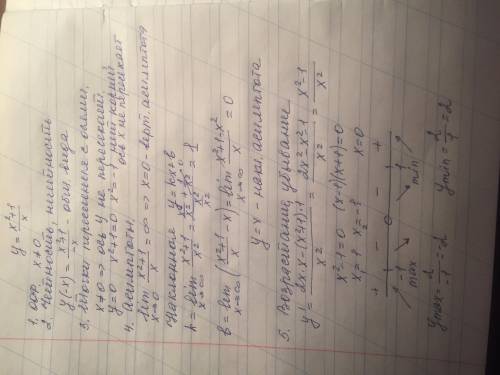 y = x²+1 / x
1. ООФ. x ≠ 0
2. Чётность, нечётность
y(-x) = x²+1 / -x - общ. вида
3. Точки пересечения с осями.
x ≠ 0 => ось y не пересекает
y = 0 x²+1 = 0 x² = -1 нет корней
ось x не пересекает
4. Асимптоты.
lim x→0 x²+1 / x = ∞ => x = 0 - верт. асимптота
Наклонная y = kx + b
k = lim x→∞ x²+1 / x² = x²/x² + 1/x² / x²/x² = 1
b = lim x→∞ (x²+1 / x - x) = lim x→∞ x²+1-x² / x = 0
y = x - накл. асимптота
5. Возрастание, убывание
y' = 2x·x - (x²+1)·1 / x² = 2x²-x²-1 / x² = x²-1 / x²
x²-1 = 0 (x-1)(x+1) = 0
x = 1 x₂ = -1 x = 0
+ - - +
-1 0 1
max min
ymax = 2 / -1 = -2 ymin = 2 / 1 = 2